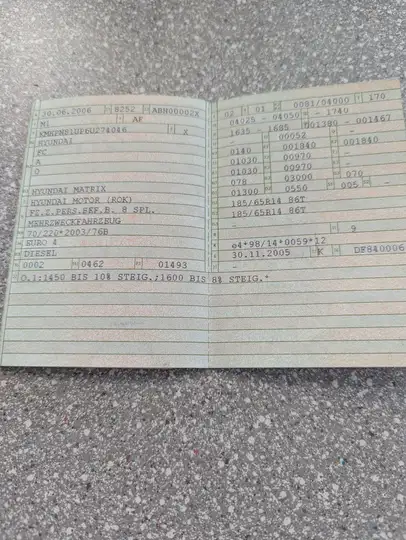 30.06.2006 8252 ABH00002X
M1 AF
X
HYUNDAI
FC
A
0
HYUNDAI MATRIX
HYUNDAI MOTOR (ROK)
FZ.Z.PERS.BEF.B. 8 SPL.
MEHRZWECKFAHRZEUG
70/220*2003/76B
EURO 4
DIESEL
0002 0462 01493
O.1:1450 BIS 10% STEIG.;1600 BIS 8% STEIG.*
02 01 0081/04000 170
04025 - 04050 - 1740
1635 - 1685 01380 - 001467
- 00052 -
0140 001840 001840
01030 00970 -
01030 00970 -
078 03000 070
01300 0550 005 -
185/65R14 86T
185/65R14 86T
-
- 9
e4*98/14*0059*12
30.11.2005 K DF840006
-